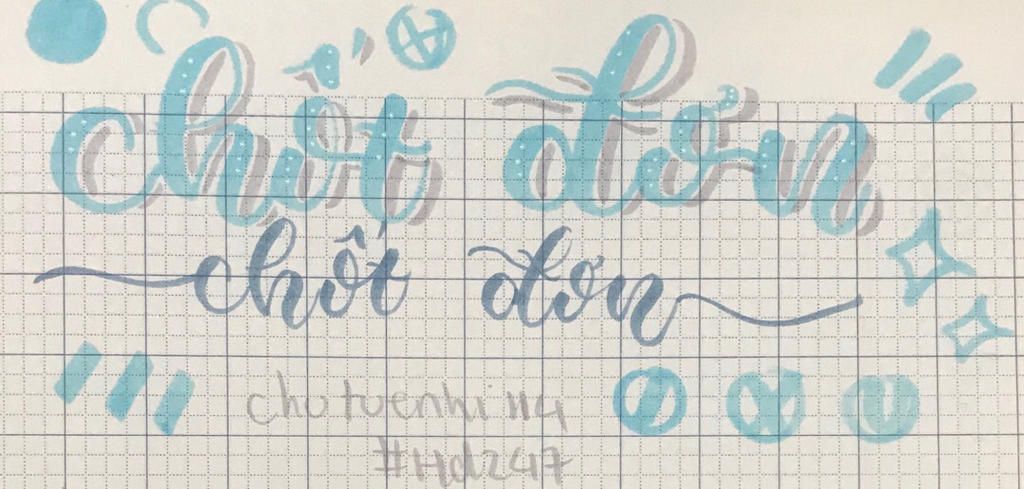 chốt đơn
chốt đơn
chutuenhi114
#Hd247